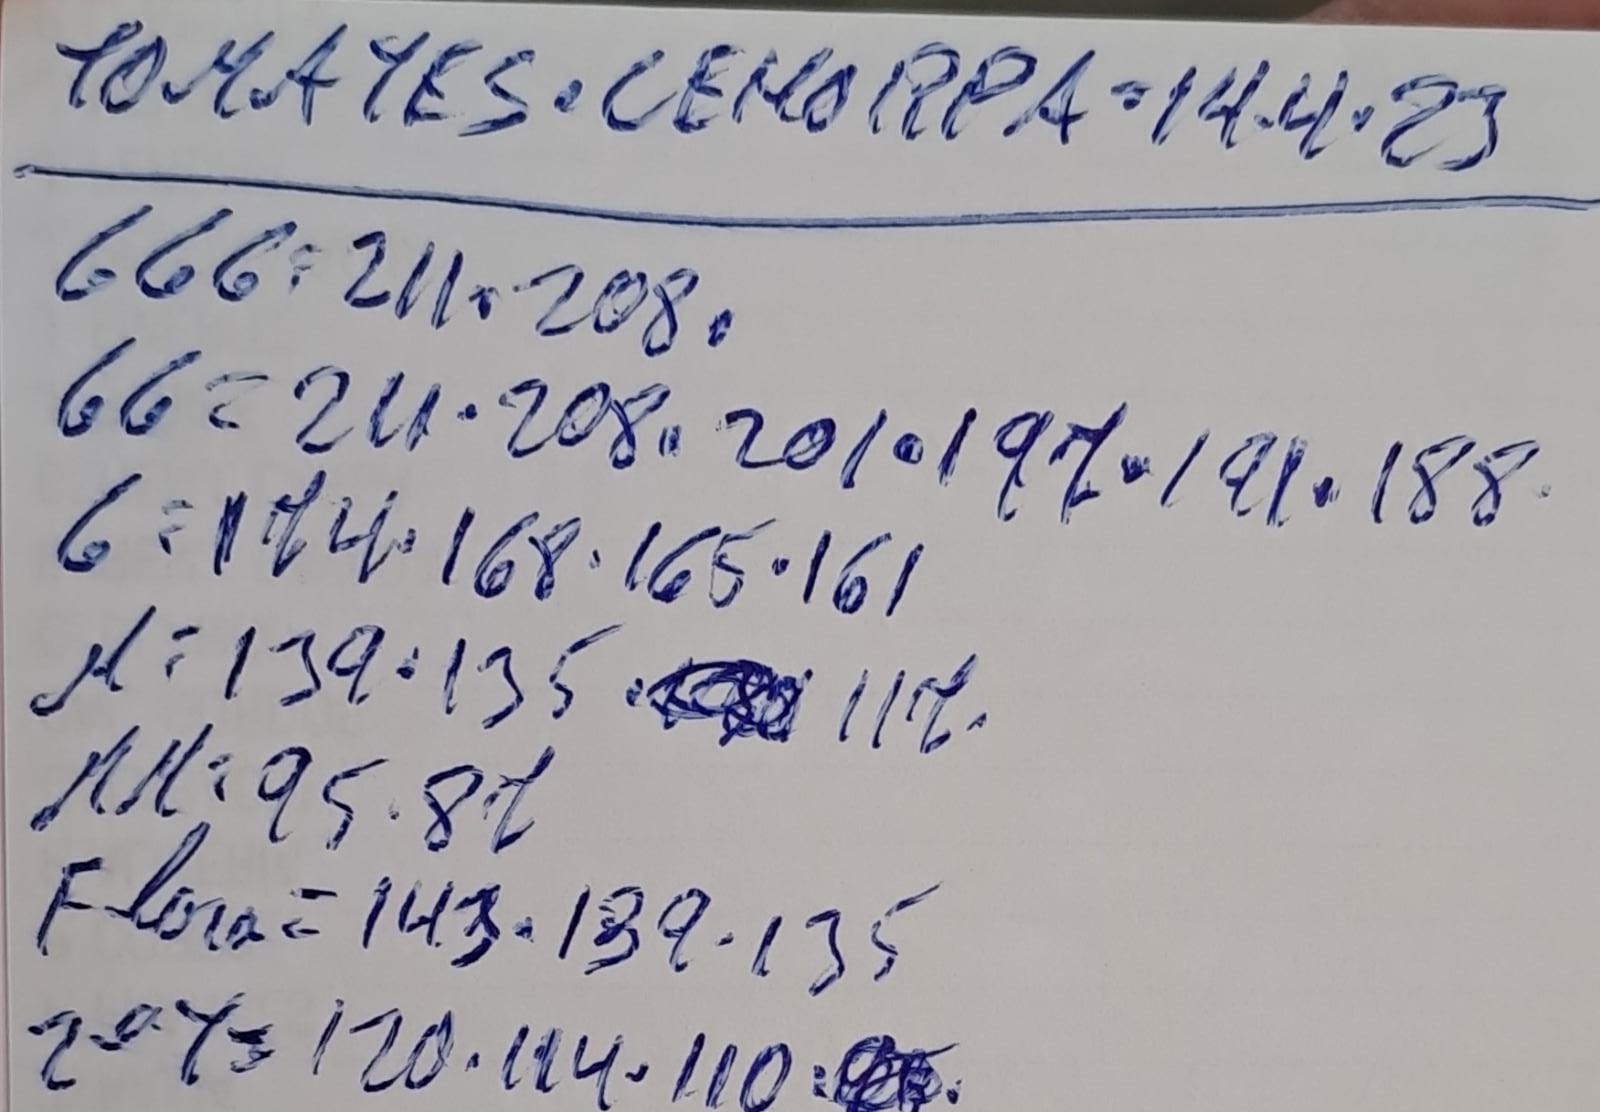 TOMATES.CEHORPA=14.4.23
GGG=211.208.
GG=211.208.201.197.191.188.
G=174.168.165.161
M=139.135. 117.
MM=95.87
Flora=143.139.135
2ºT=120.114.110.